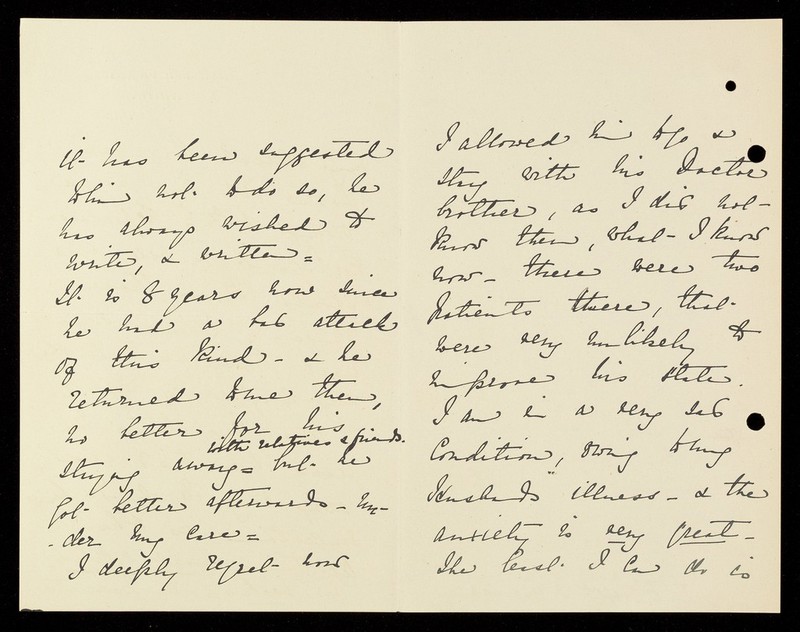 it has been suggested
to him not to do so, he
has always wished to
write, & written =
It is 8 years now since
he had a bad attack
of this kind - & he
returned to me then,
no better for his
with relatives & friends.
staying away = but he
got better afterwards - un-
-der my care =
I deeply regret now
I allowed him to go &
stay with his Doctor
brother, as I did not
know then, what I know
now - there were two
patients there, that
were very unlikely to
improve his state.
I am in a very sad
condition, owing to my
Husbands' illness - & the
anxiety is very great -
The least I can do is